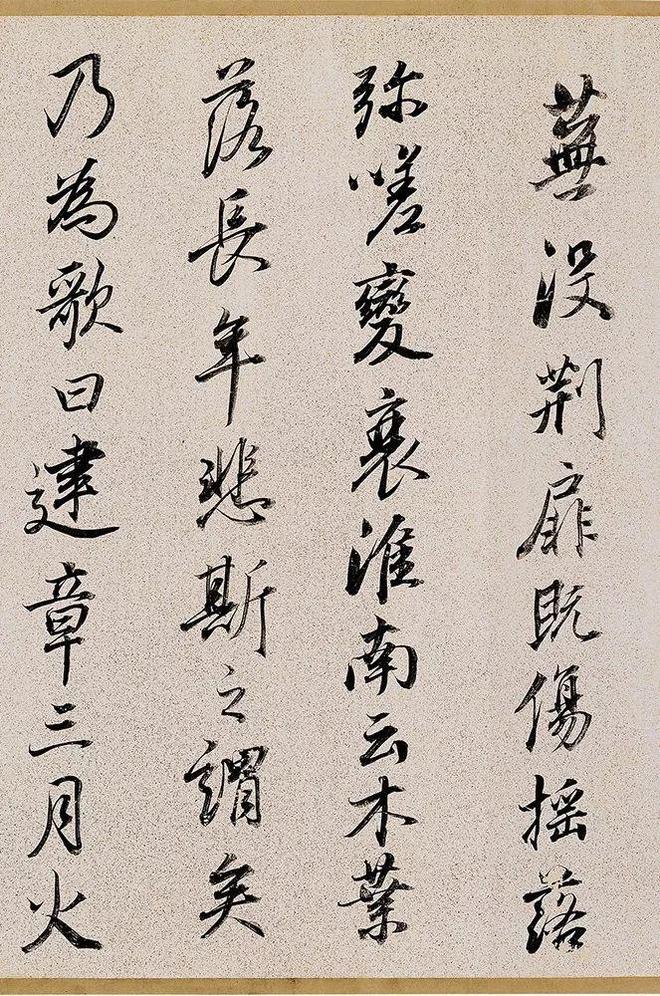 蕪没荆扉既傷搖落
弥嗟變衰淮南云木葉
落長年悲斯之謂矣
乃為歌曰建章三月火